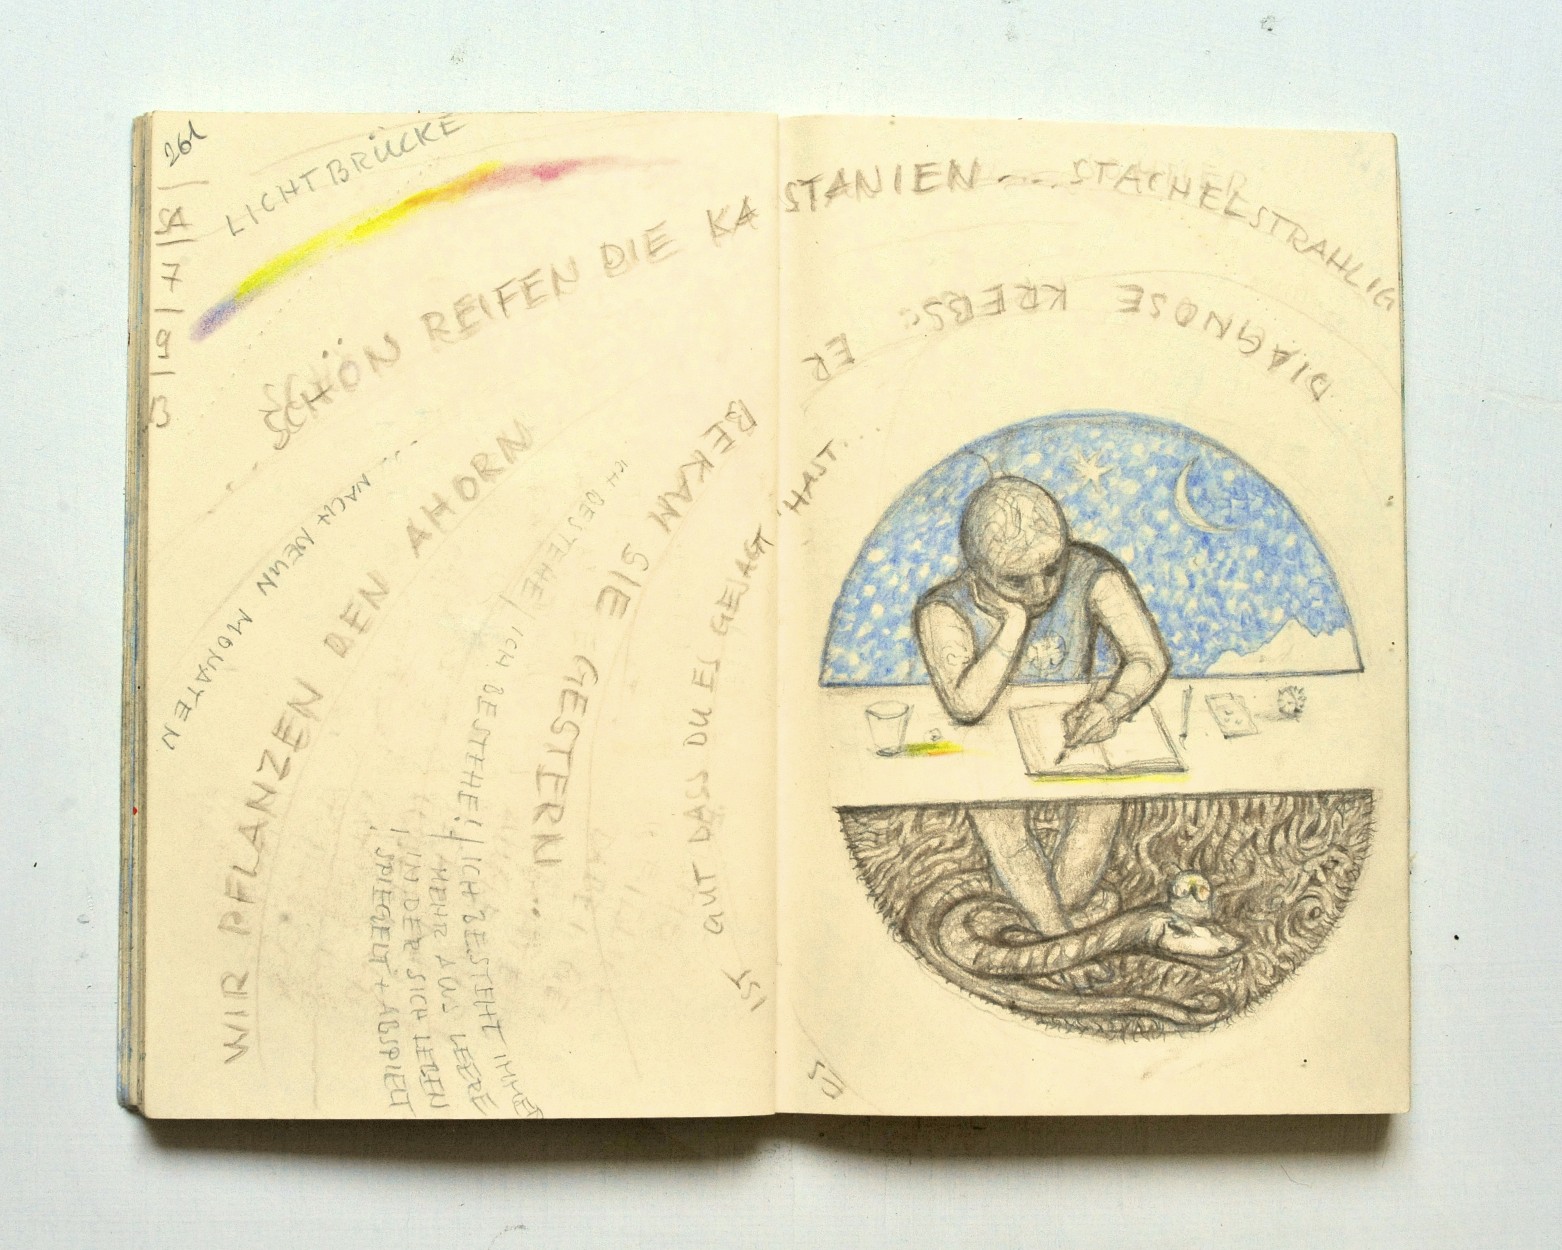 261
SA
7
9
13
LICHTBRÜCKE
SCHÖN REIFEN DIE KASTANIEN... STACHELSTRAHLIG
... NACH NEUN MONATEN
WIR PFLANZEN DEN AHORN
DIAGNOSE KREBS
ER
BEKAM SIE GESTERN...
GUT DASS DU ES GESAGT HAST....
ICH BESTEHE | ICH BESTEHE! | ICH BESTEHT IMMER
MEHR AUS LEERE
IN DER SICH LEBEN
SPIEGELT + ABSPIELT